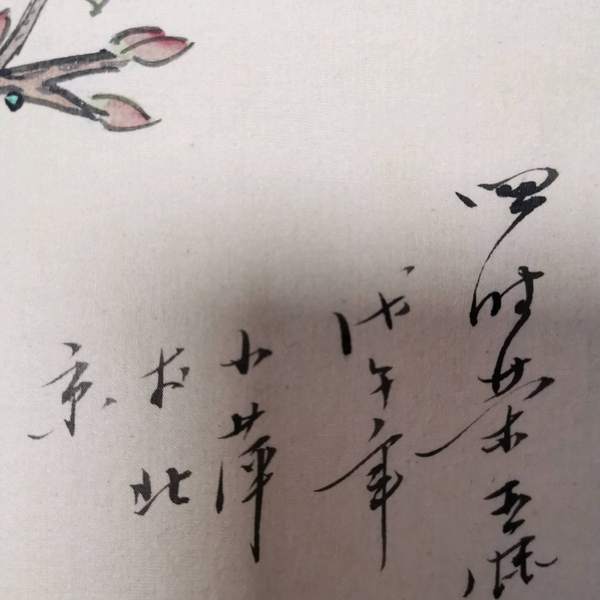 四时荣
戊午年
小萍
于北
京